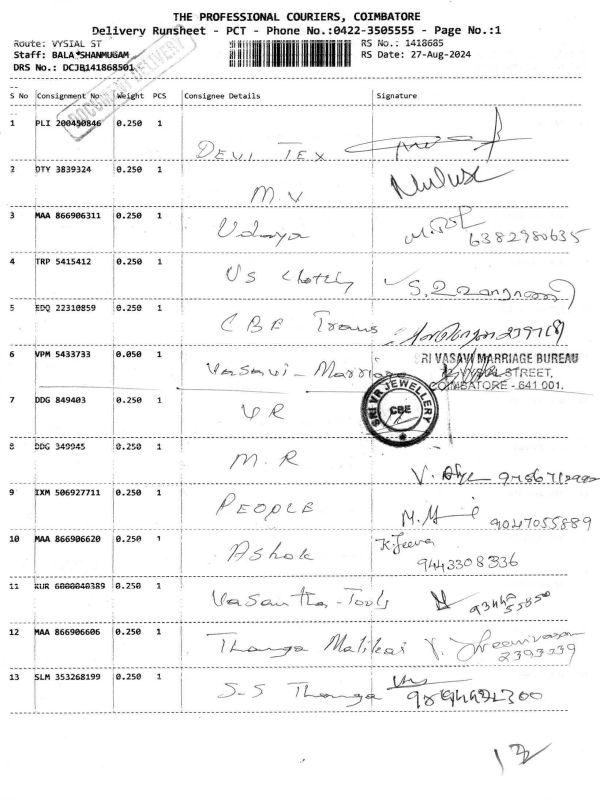 THE PROFESSIONAL COURIERS, COIMBATORE
Delivery Runsheet - PCT - Phone No.:0422-3505555 - Page No.:1
Route: VYSIAL ST RS No.: 1418685
Staff: BALA SHANMUGAM RS Date: 27-Aug-2024
DRS No.: DCJB141868501
DOCUMENT DELIVERY
S No Consignment No Weight PCS Consignee Details Signature
1 PLI 200450846 0.250 1 DEVI TEX
2 DTY 3839324 0.250 1 M.V
3 MAA 866906311 0.250 1 Udaya 6382980635
4 TRP 5415412 0.250 1 US
5 EDQ 22310859 0.250 1 CBE Trans
6 VPM 5433733 0.050 1 Vasavi - Marriage
SRI VASAVI MARRIAGE BUREAU
VYSIAL STREET,
COIMBATORE - 641 001.
7 DDG 849403 0.250 1 VR
SRI VR JEWELLERY
CBE
8 DDG 349945 0.250 1 M.R
9 IXM 506927711 0.250 1 PEOPLE 9047055889
10 MAA 866906620 0.250 1 Ashok K.Jeeva
9443308336
11 KUR 6000040389 0.250 1 Vasantha - Tools
12 MAA 866906606 0.250 1 Thanga Malikai V. Sreenivasan
2393939
13 SLM 353268199 0.250 1 S-S Thanga